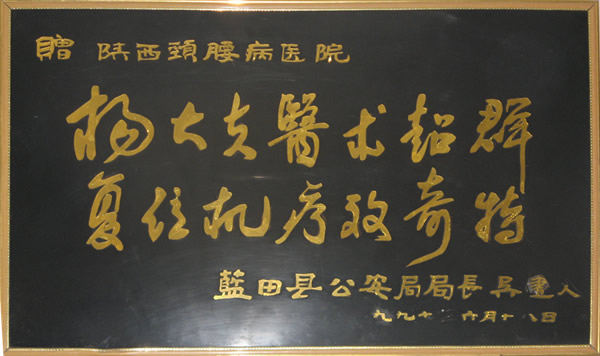 贈 陕西頚腰病医院
杨大夫醫术超群
复位机疗效奇特
藍田县公安局局長吴
九九 六月十八日